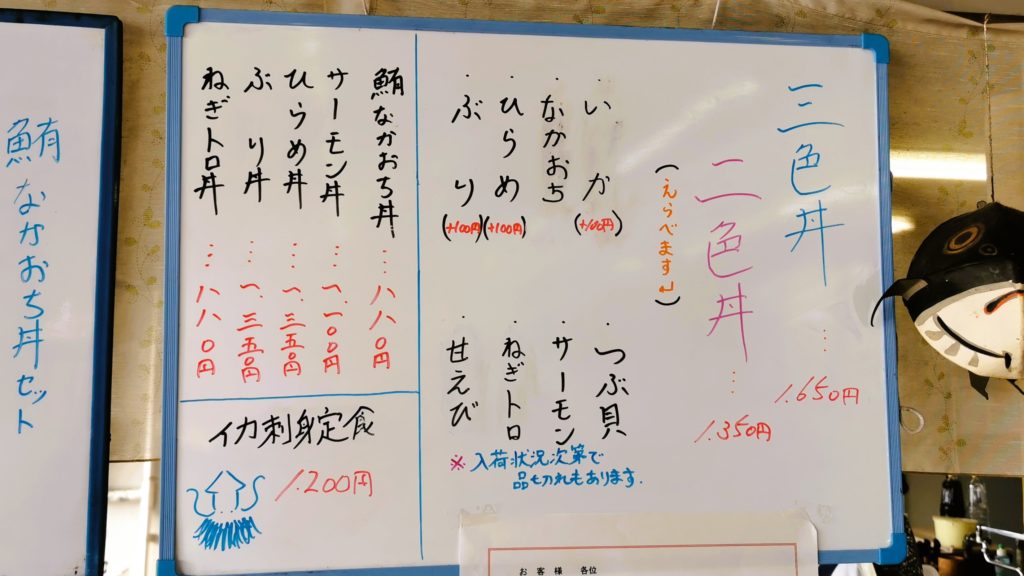 三色丼…1,650円
二色丼…1,350円
(えらべます↵)
・いか(+100円)
・なかおち
・ひらめ(+100円)
・ぶり(+100円)
・つぶ貝
・サーモン
・ねぎトロ
・甘えび
※入荷状況次第で
品切れもあります.
鮪なかおち丼…八八〇円
サーモン丼…一、一〇〇円
ひらめ丼…一、三五〇円
ぶり丼…一、三五〇円
ねぎトロ丼…八八〇円
イカ刺身定食
1,200円
鮪なかおち丼セット
お客様 各位